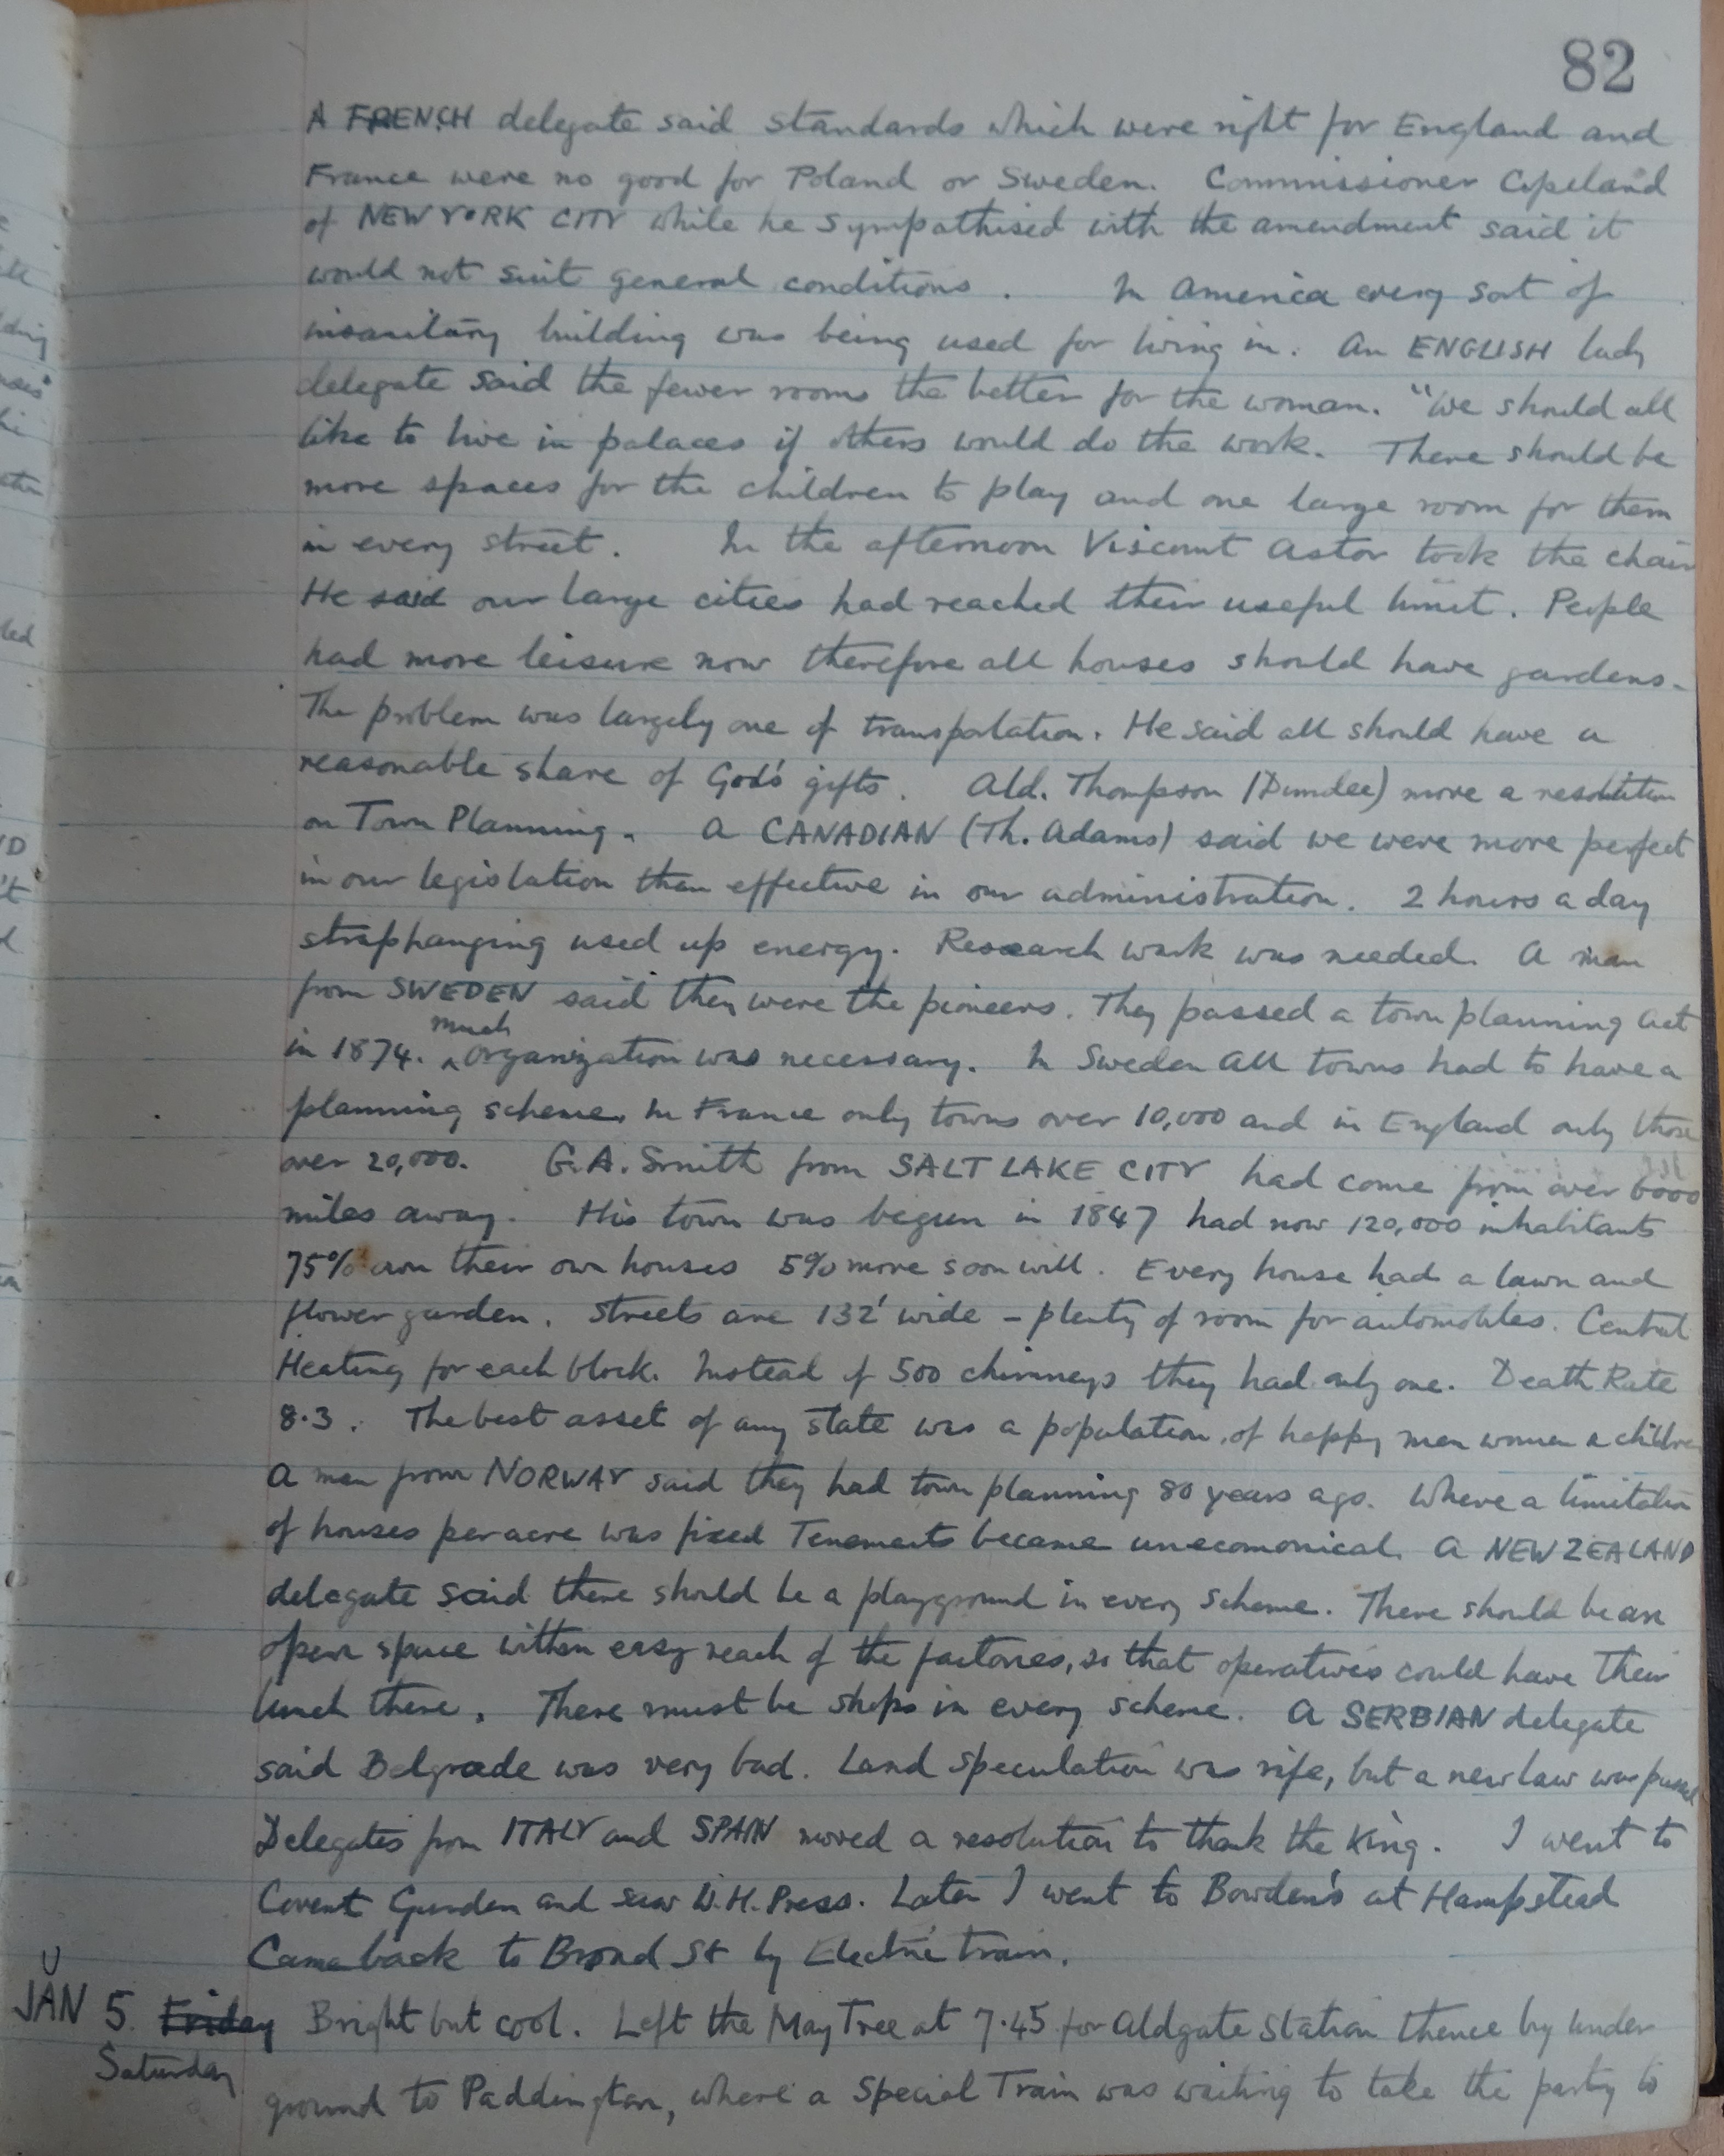 82
A FRENCH delegate said standards which were right for England and
France were no good for Poland or Sweden. Commissioner Copeland
of NEW YORK CITY while he sympathised with the amendment said it
would not suit general conditions. In America every sort of
insanitary building was being used for living in. An ENGLISH lady
delegate said the fewer rooms the better for the woman. "We should all
like to live in palaces if others would do the work. There should be
more spaces for the children to play and one large room for them
in every street. In the afternoon Viscount Astor took the chair
He said our large cities had reached their useful limit. People
had more leisure now therefore all houses should have gardens.
The problem was largely one of transportation. He said all should have a
reasonable share of God's gifts. Ald. Thompson (Dundee) move a resolution
on Town Planning. A CANADIAN (Th. Adams) said we were more perfect
in our legislation than effective in our administration. 2 hours a day
straphanging used up energy. Research work was needed. A man
from SWEDEN said they were the pioneers. They passed a town planning Act
in 1874. much Organization was necessary. In Sweden all towns had to have a
planning scheme. In France only towns over 10,000 and in England only those
over 20,000. G.A. Smith from SALT LAKE CITY had come from over 6000
miles away. His town was begun in 1847 had now 120,000 inhabitants
75% own their own houses 5% more soon will. Every house had a lawn and
flower garden. Streets are 132' wide - plenty of room for automobiles. Central
Heating for each block. Instead of 500 chimneys they had only one. Death Rate
8.3. The best asset of any state was a population, of happy men women & children
A man from NORWAY said they had town planning 80 years ago. Where a limitation
of houses per acre was fixed Tenements became uneconomical. A NEW ZEALAND
delegate said there should be a playground in every scheme. There should be an
open space within easy reach of the factories, so that operatives could have their
lunch there. There must be shops in every scheme. A SERBIAN delegate
said Belgrade was very bad. Land speculation was rife, but a new law was passed
Delegates from ITALY and SPAIN moved a resolution to thank the King. I went to
Covent Garden and saw W.H. Press. Later I went to Bowden's at Hampstead
Came back to Broad St by Electric train.
JUN 5 Friday Bright but cool. Left the May Tree at 7.45 for Aldgate Station thence by under
Saturday
ground to Paddington, where a Special Train was waiting to take the party to